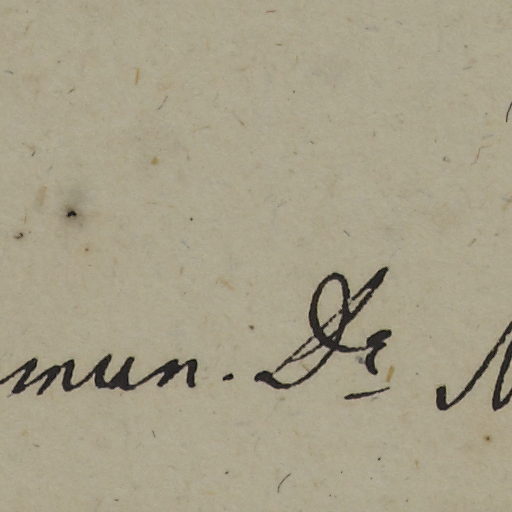 mun. Dr N